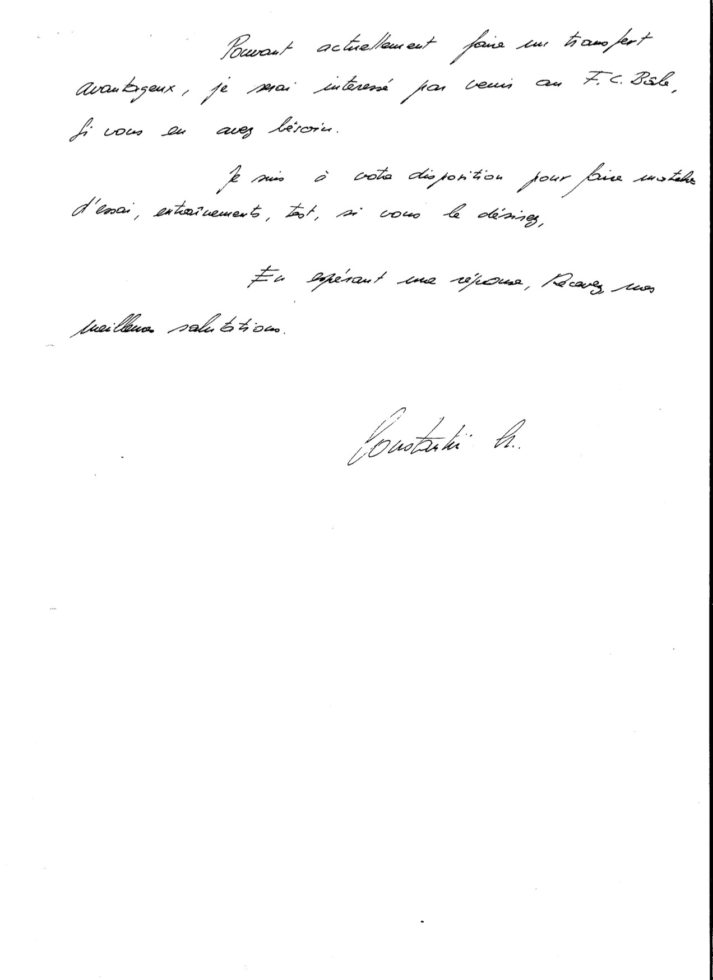 Pouvant actuellement faire un transfert
avantageux, je serai interessé par venir au F.C. Bâle,
si vous en avez bésoin.
Je suis à votre disposition pour faire matchs
d'essai, entraînements, test, si vous le désirez,
En espérant une réponse, Recevez mes
meilleures salutations.
Constantin Ch.